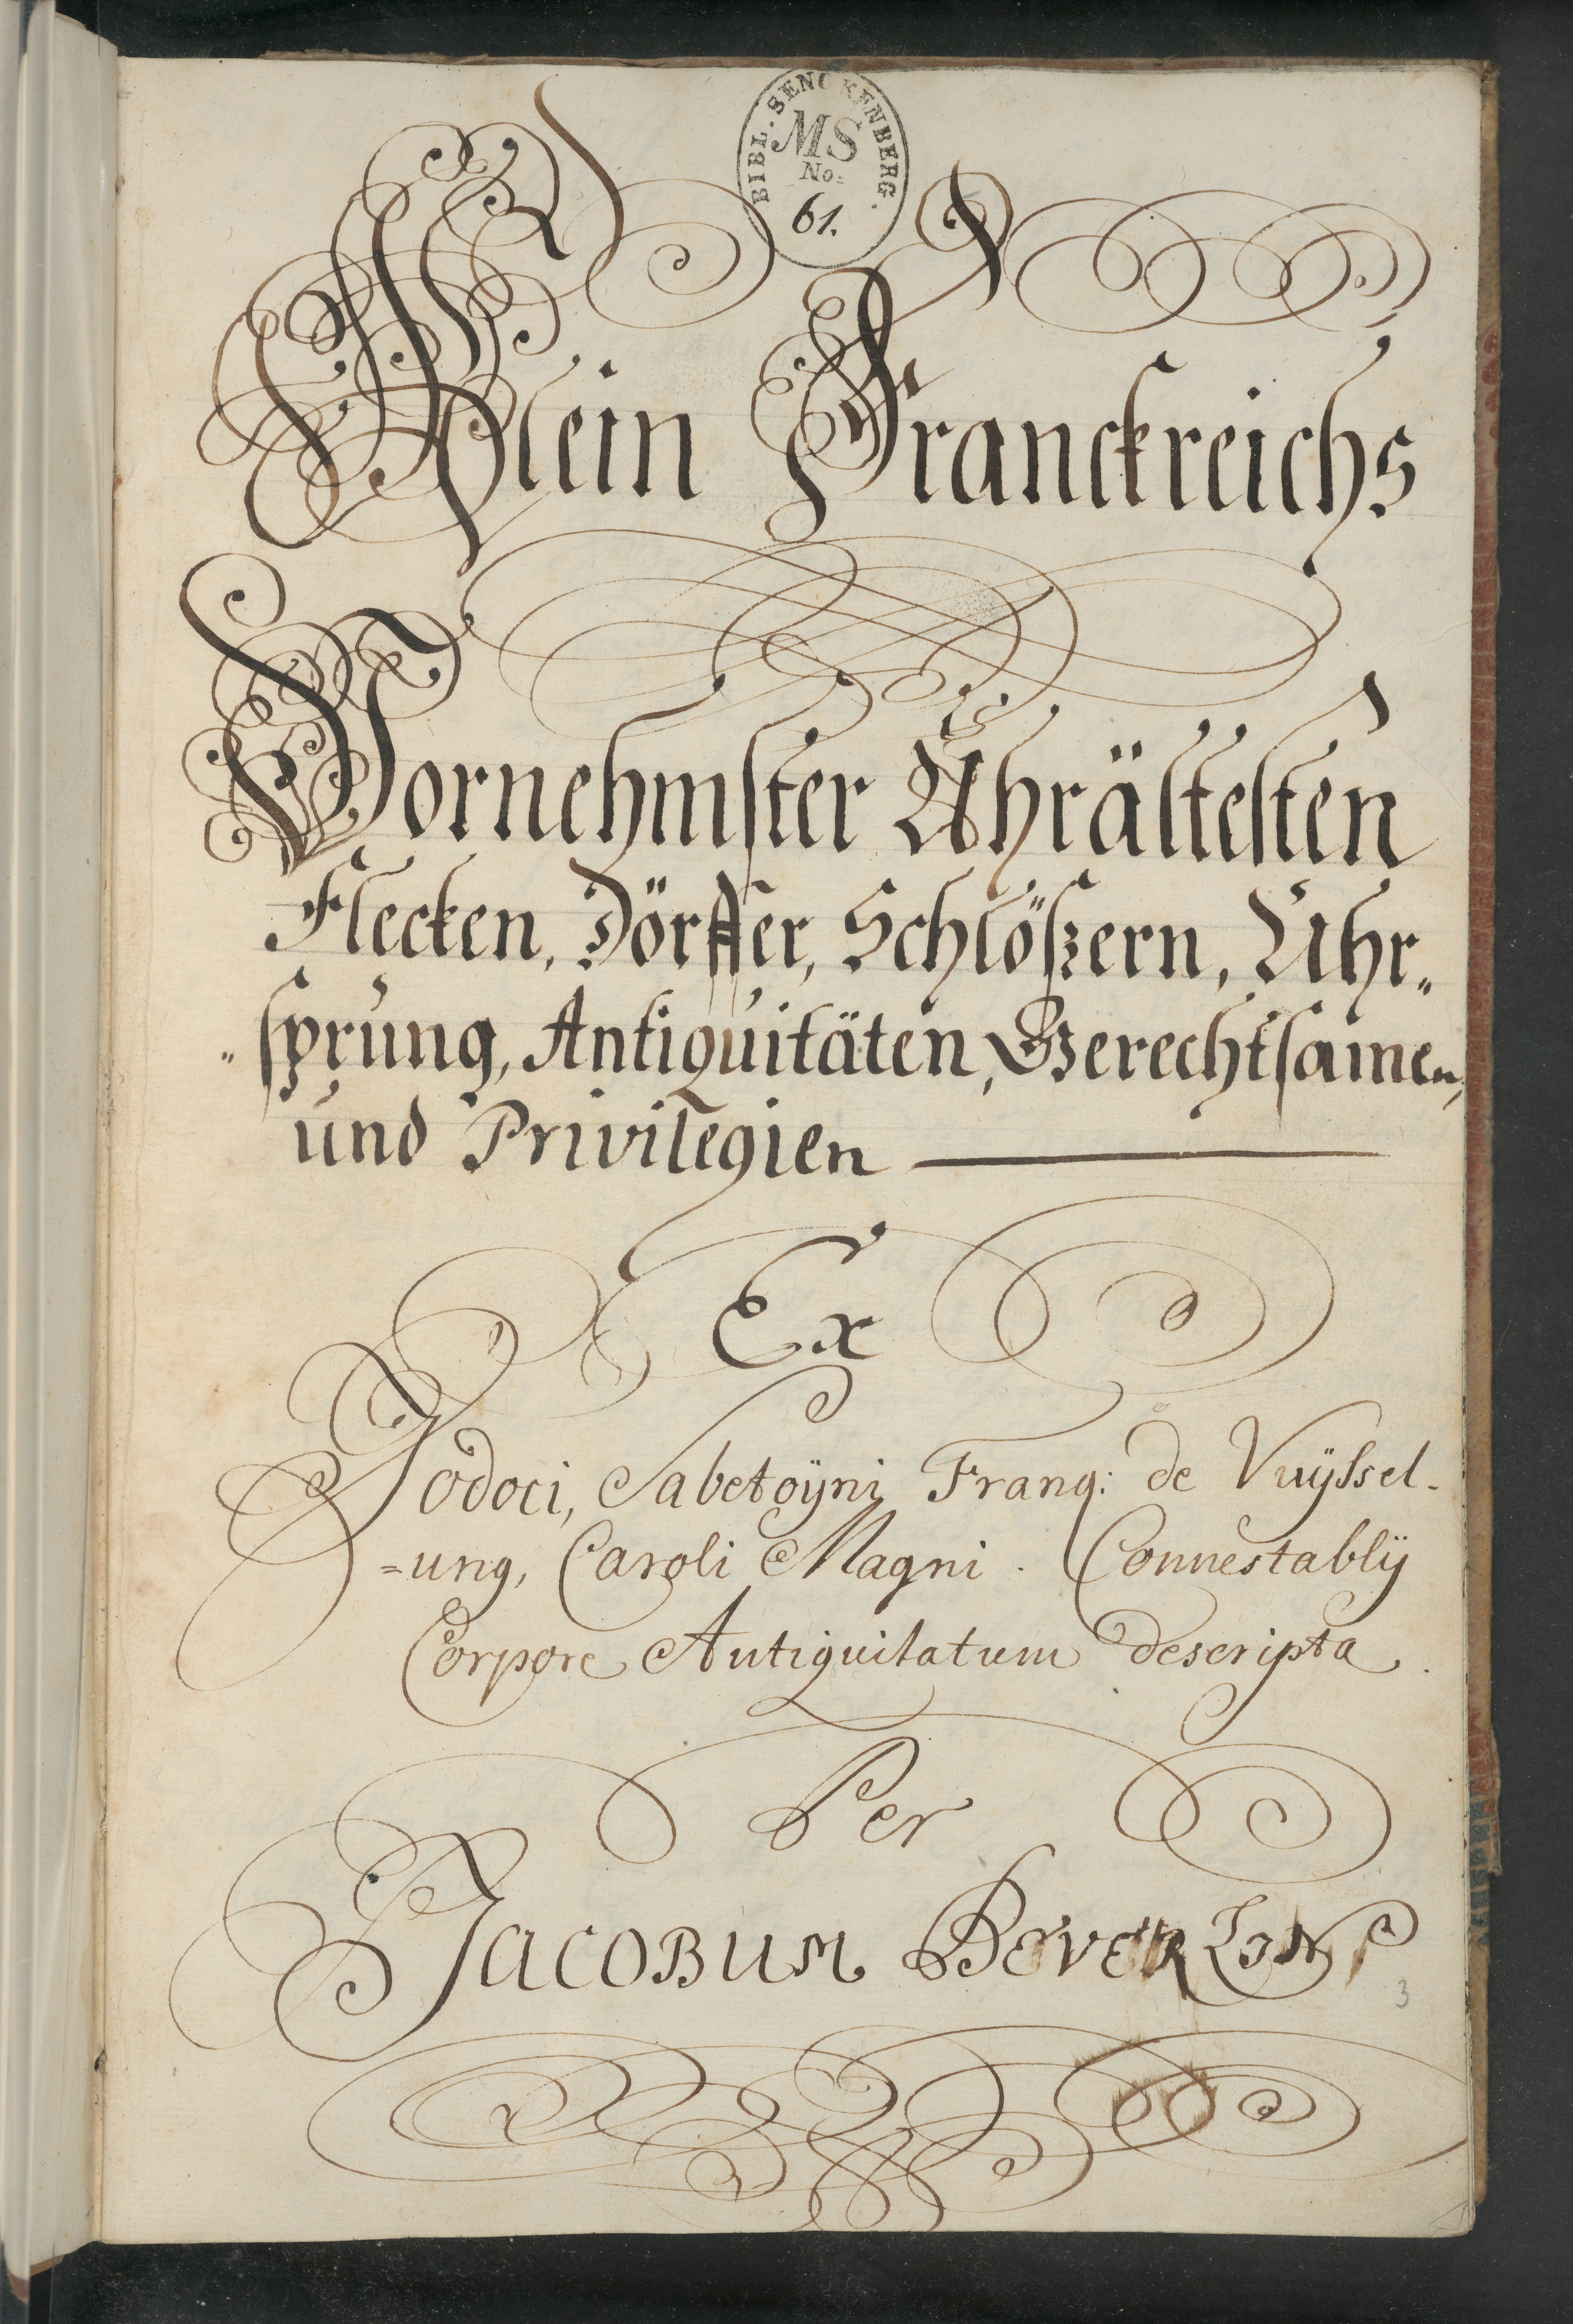 BIBL. SENCKENBERG.
MS
No:
61.
Klein Franckreichs
Vornehmster Uhrältesten
Flecken, Dörffer, Schlößern, Uhr„
„sprung, Antiquitäten, Gerechtsamen,
und Privilegien
Ex
Jodoci, Sabetoÿni Franq: de Vuÿssel-
=ung, Caroli Magni. Connestablÿ
Corpore Antiquitatum descripta.
Per
Jacobum
3